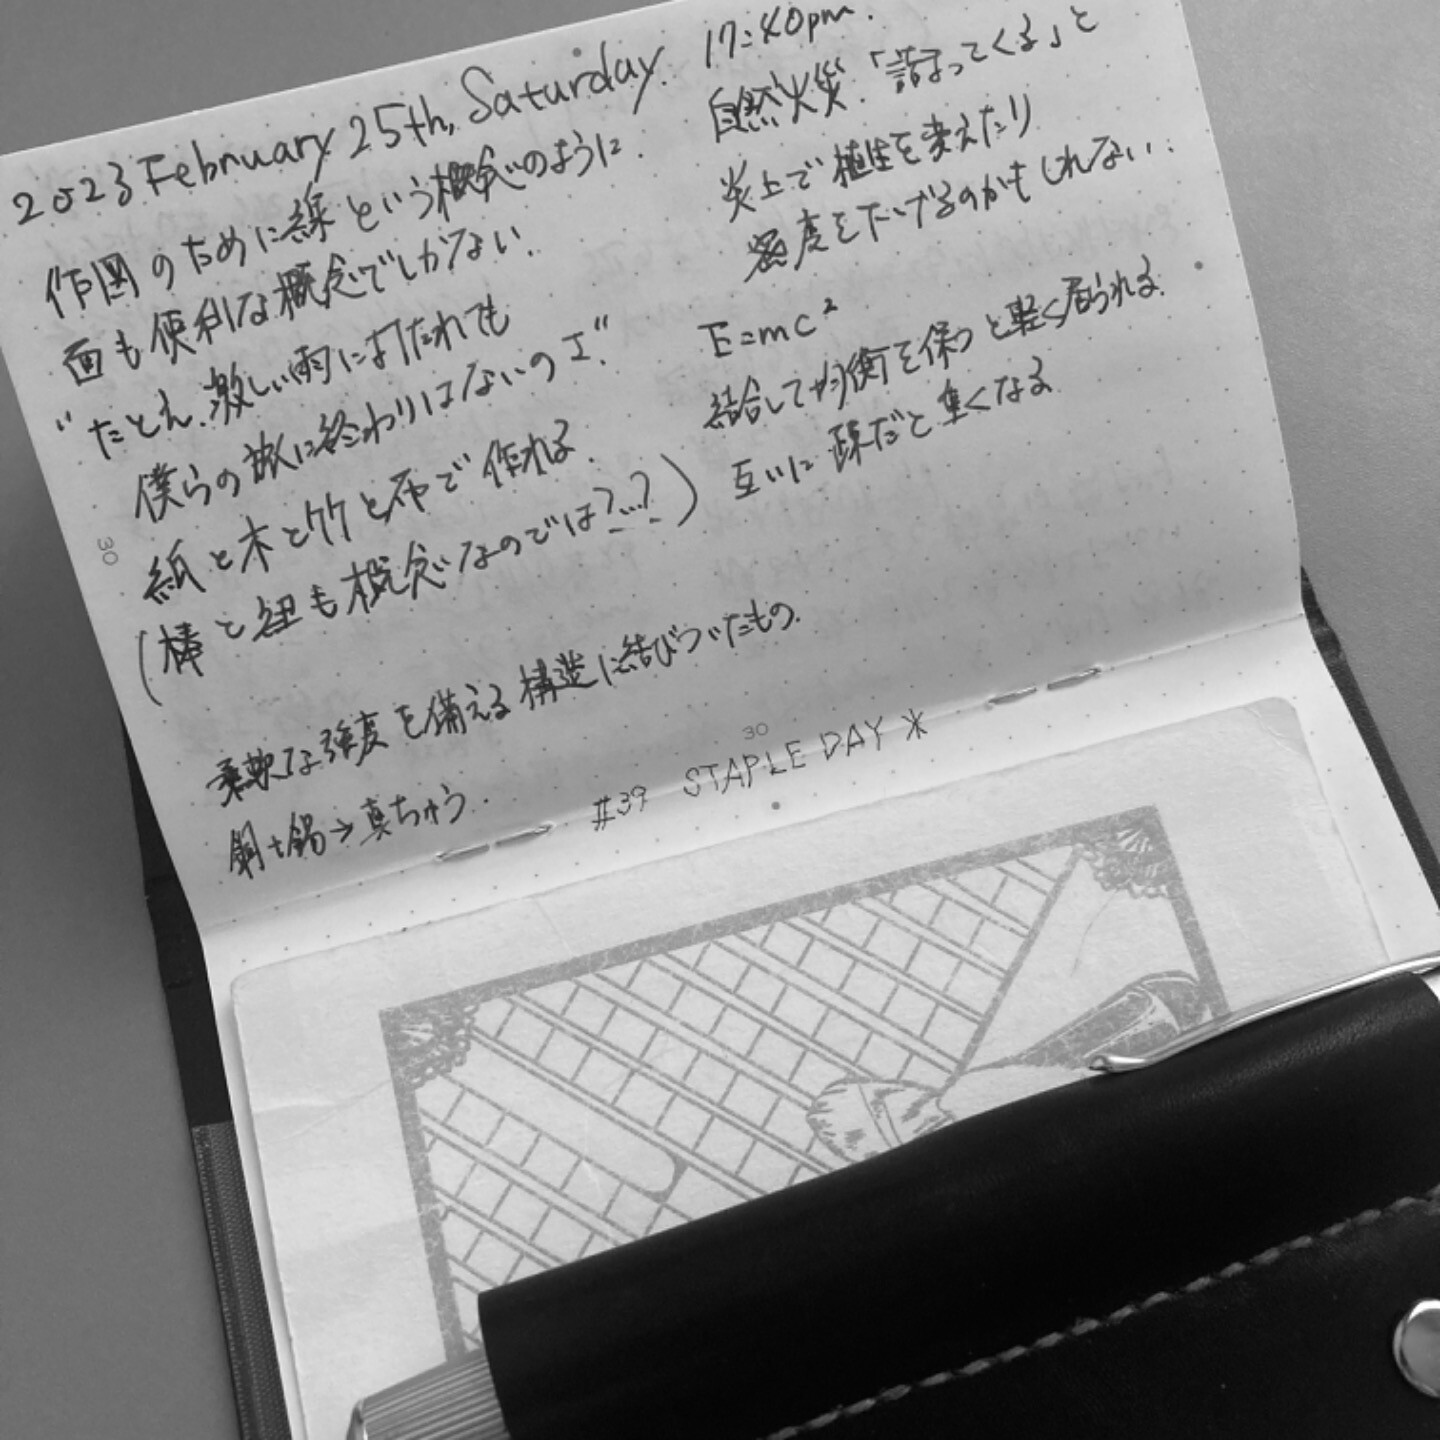 2023 February 25th, Saturday. 17:40pm.
作図のために線という概念のように.
面も便利な概念でしかない.
"たとえ激しい雨に打たれても
僕らの旅に終わりはないのさ."
紙と木と竹と布で作れる.
(棒と紐も概念なのでは?...?)
柔軟な強度を備える構造に結びついたもの.
銅+錫→真ちゅう.
自然火災.「詰まってくる」と
炎上で植生を変えたり
密度を下げるのかもしれない..
E=mc²
結合して均衡を保つと軽く居られる.
互いに疎だと重くなる
30
30
#39 STAPLE DAY *